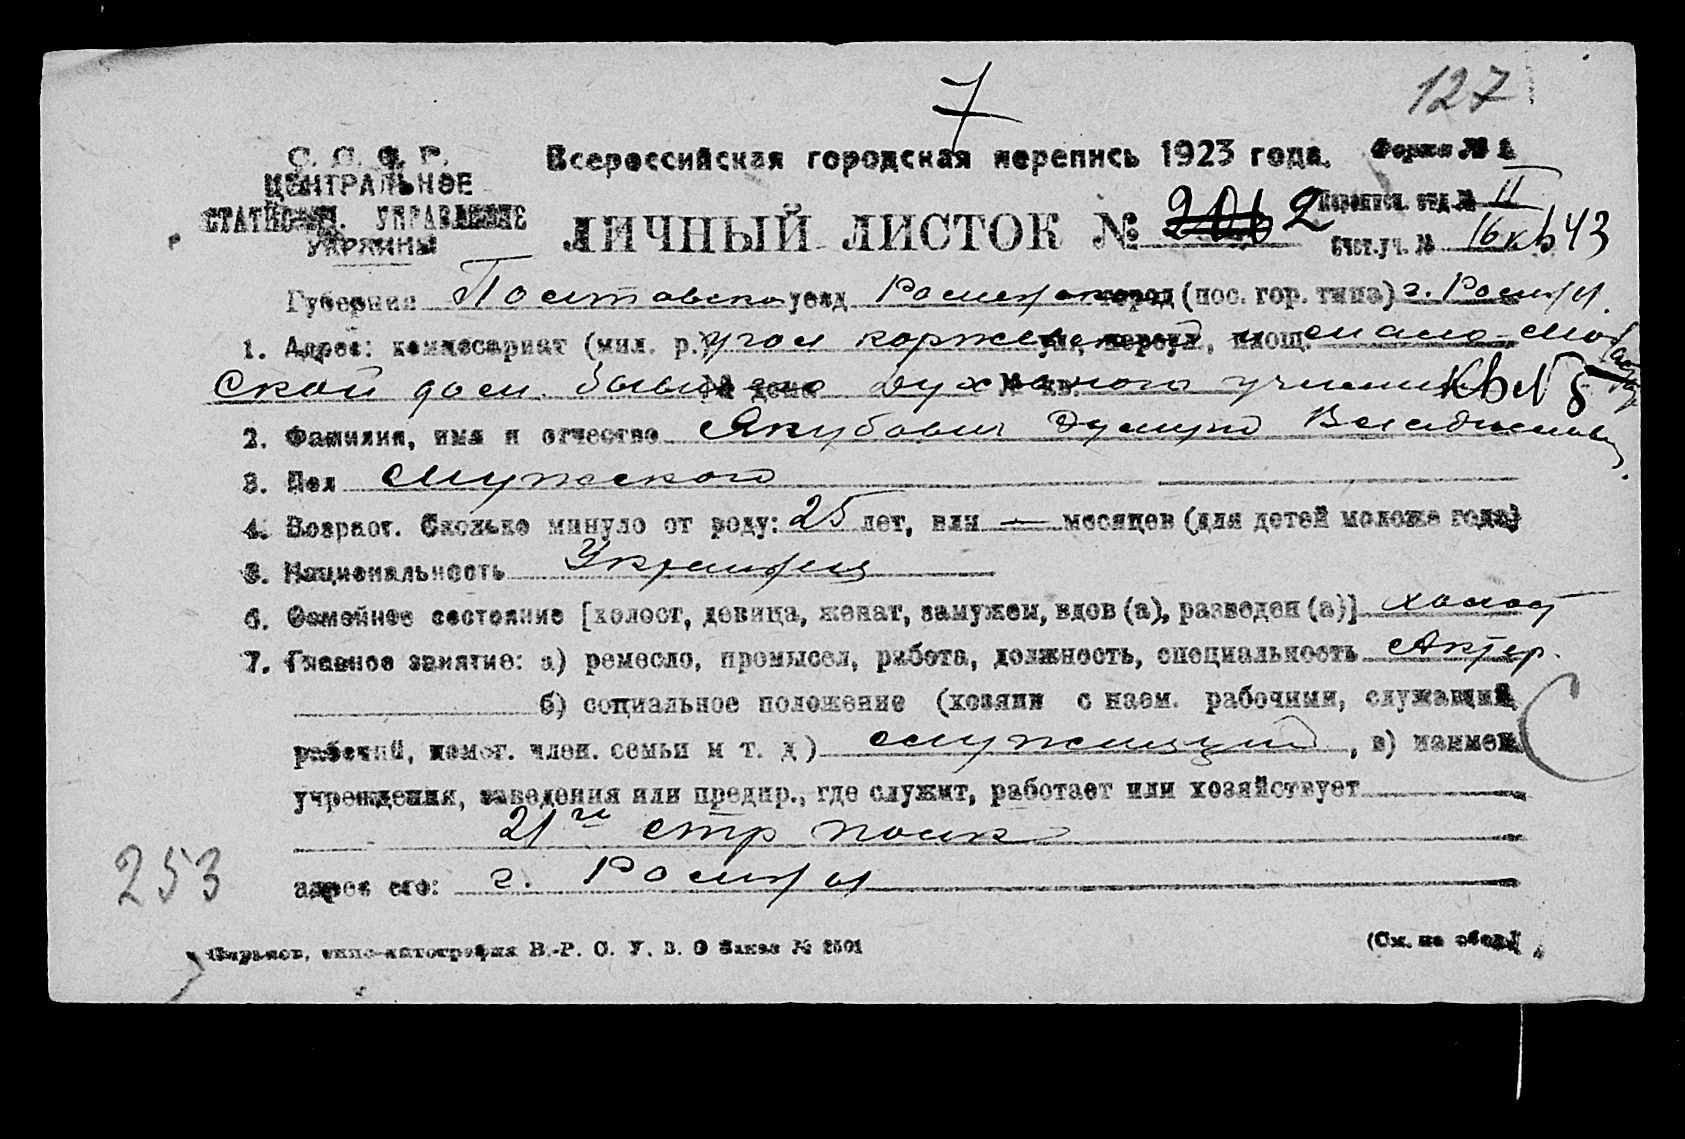 7
127
С. С. С. Р.
ЦЕНТРАЛЬНОЕ
СТАТИСТИЧ. УПРАВЛЕНИЕ
УКРАИНЫ
Всероссийская городская перепись 1923 года. Форма № 1
ЛИЧНЫЙ ЛИСТОК № 2
Переписн. отд. № II
Счет. уч. № 16 кв 43
Губерния Полтавская уезд Роменск город (пос. гор. типа) г. Ромны.
1. Адрес: комиссариат (мил. р.) угол ул., переул., площ.
ской дом. бывшего № дома Духовного № кв. училища кв № 8
2. Фамилия, имя и отчество Якубович
3. Пол мужской
4. Возраст. Сколько минуло от роду: 25 лет, или — месяцев (для детей моложе года)
5. Национальность Украинец
6. Семейное состояние [холост, девица, женат, замужем, вдов (а), разведен (а)] холост
7. Главное занятие: а) ремесло, промысел, работа, должность, специальность Актер.
б) социальное положение (хозяин с наем. рабочими, служащий,
рабочий, помог. член. семьи и т. д) служащий, в) наимен.
учреждения, заведения или предпр., где служит, работает или хозяйствует
21го стр полк
253
адрес его: г. Ромны
Харьков, типо-литография В.-Р. С. У. В. О Заказ № 2501
(См. на обор.)